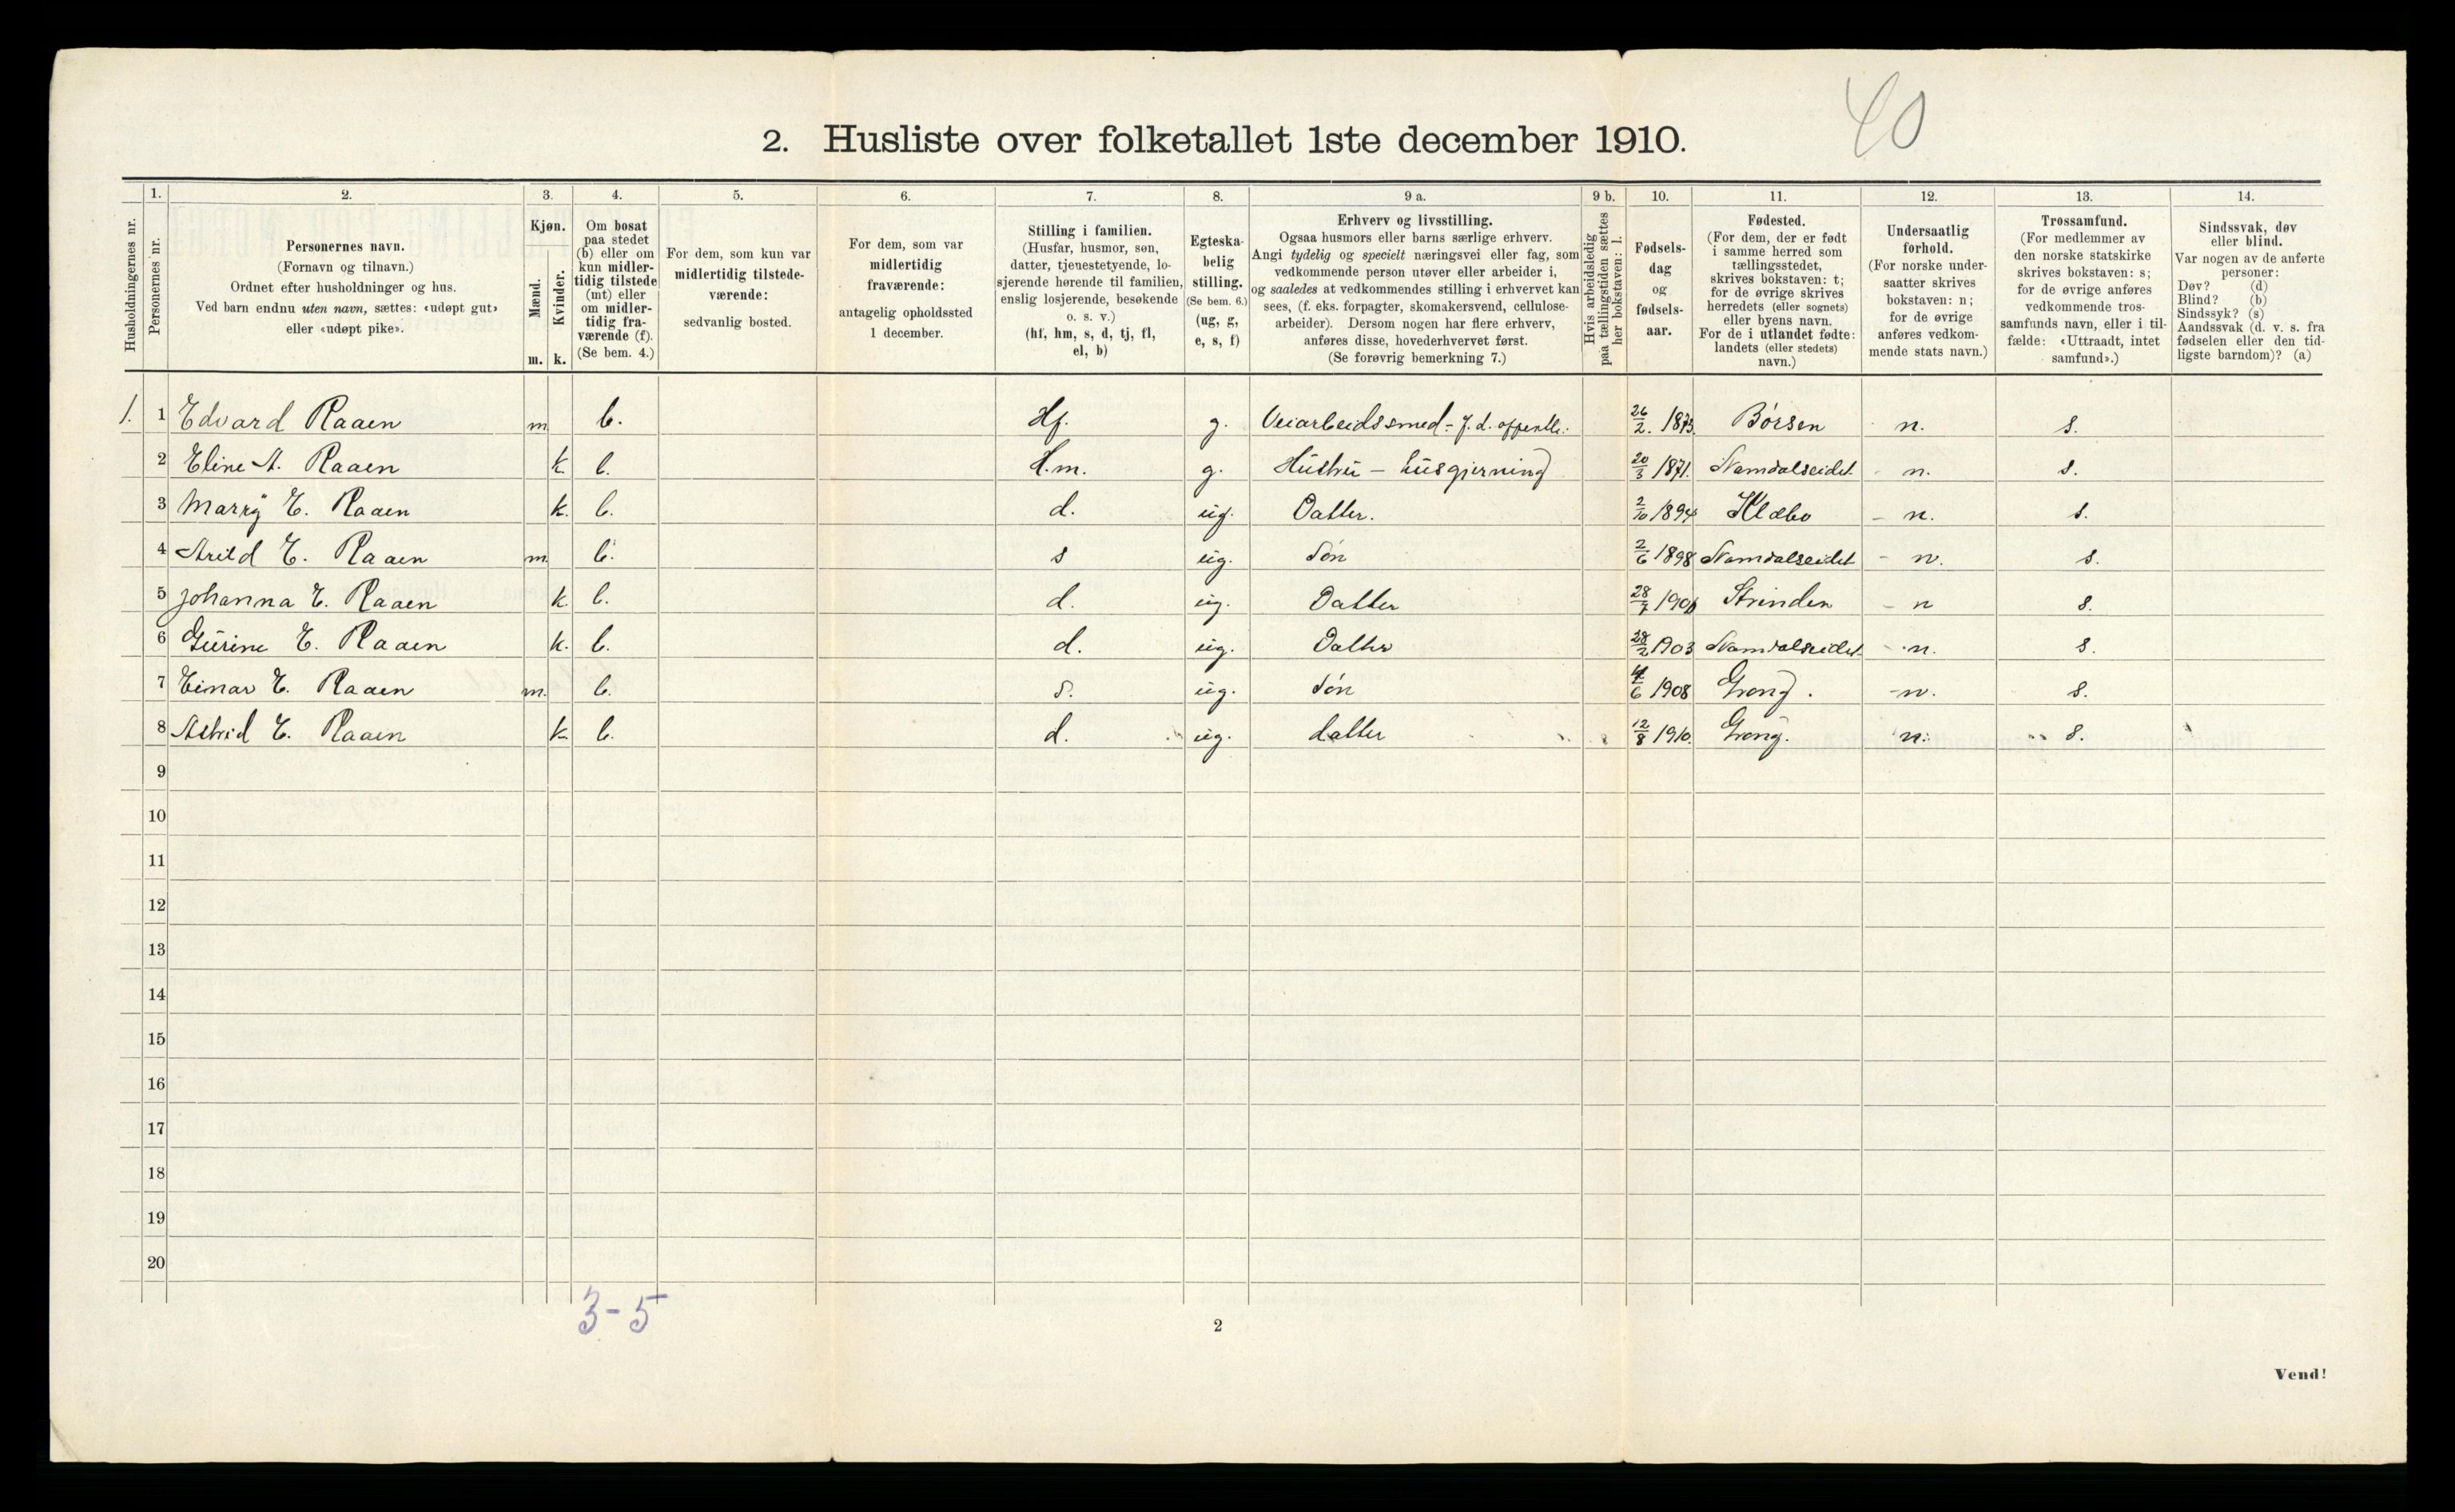 40
2. Husliste over folketallet 1ste december 1910.
1. 2. 3. 4. 5. 6. 7. 8. 9 a. 9 b. 10. 11. 12. 13. 14.
Husholdningernes nr.
Personernes nr.
Personernes navn.
(Fornavn og tilnavn.)
Ordnet efter husholdninger og hus.
Ved barn endnu uten navn, sættes: «udøpt gut»
eller «udøpt pike».
Kjøn.
Mænd.
Kvinder.
m. k.
Om bosat
paa stedet
(b) eller om
kun midler-
tidig tilstede
(mt) eller
om midler-
tidig fra-
værende (f).
(Se bem. 4.)
For dem, som kun var
midlertidig tilstede-
værende:
sedvanlig bosted.
For dem, som var
midlertidig
fraværende:
antagelig opholdssted
1 december.
Stilling i familien.
(Husfar, husmor, søn,
datter, tjenestetyende, lo-
sjerende hørende til familien,
enslig losjerende, besøkende
o. s. v.)
(hf, hm, s, d, tj, fl,
el, b)
Egteska-
belig
stilling.
(Se bem. 6.)
(ug, g,
e, s, f)
Erhverv og livsstilling.
Ogsaa husmors eller barns særlige erhverv.
Angi tydelig og specielt næringsvei eller fag, som
vedkommende person utøver eller arbeider i,
og saaledes at vedkommendes stilling i erhvervet kan
sees, (f. eks. forpagter, skomakersvend, cellulose-
arbeider). Dersom nogen har flere erhverv,
anføres disse, hovederhvervet først.
(Se forøvrig bemerkning 7.)
Hvis arbeidsledig
paa tællingstiden sættes
her bokstaven: l.
Fødsels-
dag
og
fødsels-
aar.
Fødested.
(For dem, der er født
i samme herred som
tællingsstedet,
skrives bokstaven: t;
for de øvrige skrives
herredets (eller sognets)
eller byens navn.
For de i utlandet fødte:
landets (eller stedets)
navn.)
Undersaatlig
forhold.
(For norske under-
saatter skrives
bokstaven: n;
for de øvrige
anføres vedkom-
mende stats navn.)
Trossamfund.
(For medlemmer av
den norske statskirke
skrives bokstaven: s;
for de øvrige anføres
vedkommende tros-
samfunds navn, eller i til-
fælde: «Uttraadt, intet
samfund».)
Sindssvak, døv
eller blind.
Var nogen av de anførte
personer:
Døv? (d)
Blind? (b)
Sindssyk? (s)
Aandssvak (d. v. s. fra
fødselen eller den tid-
ligste barndom)? (a)
1. 1 Edvard Raaen m b. Hf. g. Veiarbeidssmed - f. d. offentl. 26/2. 1873. Börsen n. s.
2 Eline A. Raaen k b. H.m. g. Hustru - husgjerning 20/3 1871. Namdalseidet - n. s.
3 Marry E. Raaen k. b. d. ug. Datter. 2/10 1894 Klæbo - n. s.
4 Arild E. Raaen m b. s ug. Sön 2/6 1898 Namdalseidet - n. s.
5 Johanna E. Raaen k. b. d. ug. Datter 28/7 Strinden - n s.
6 Gurine E. Raaen k. b. d. ug. Datter 28/2 1903 Namdalseidet - n. s.
7 Einar E. Raaen m. b. s. ug. Sön 6 1908 Grong. - n. s.
8 Astrid E. Raaen k b. d. ug. datter 12/8 1910. Grong. n. s.
9
10
11
12
13
14
15
16
17
18
19
20
3-5
2
Vend!